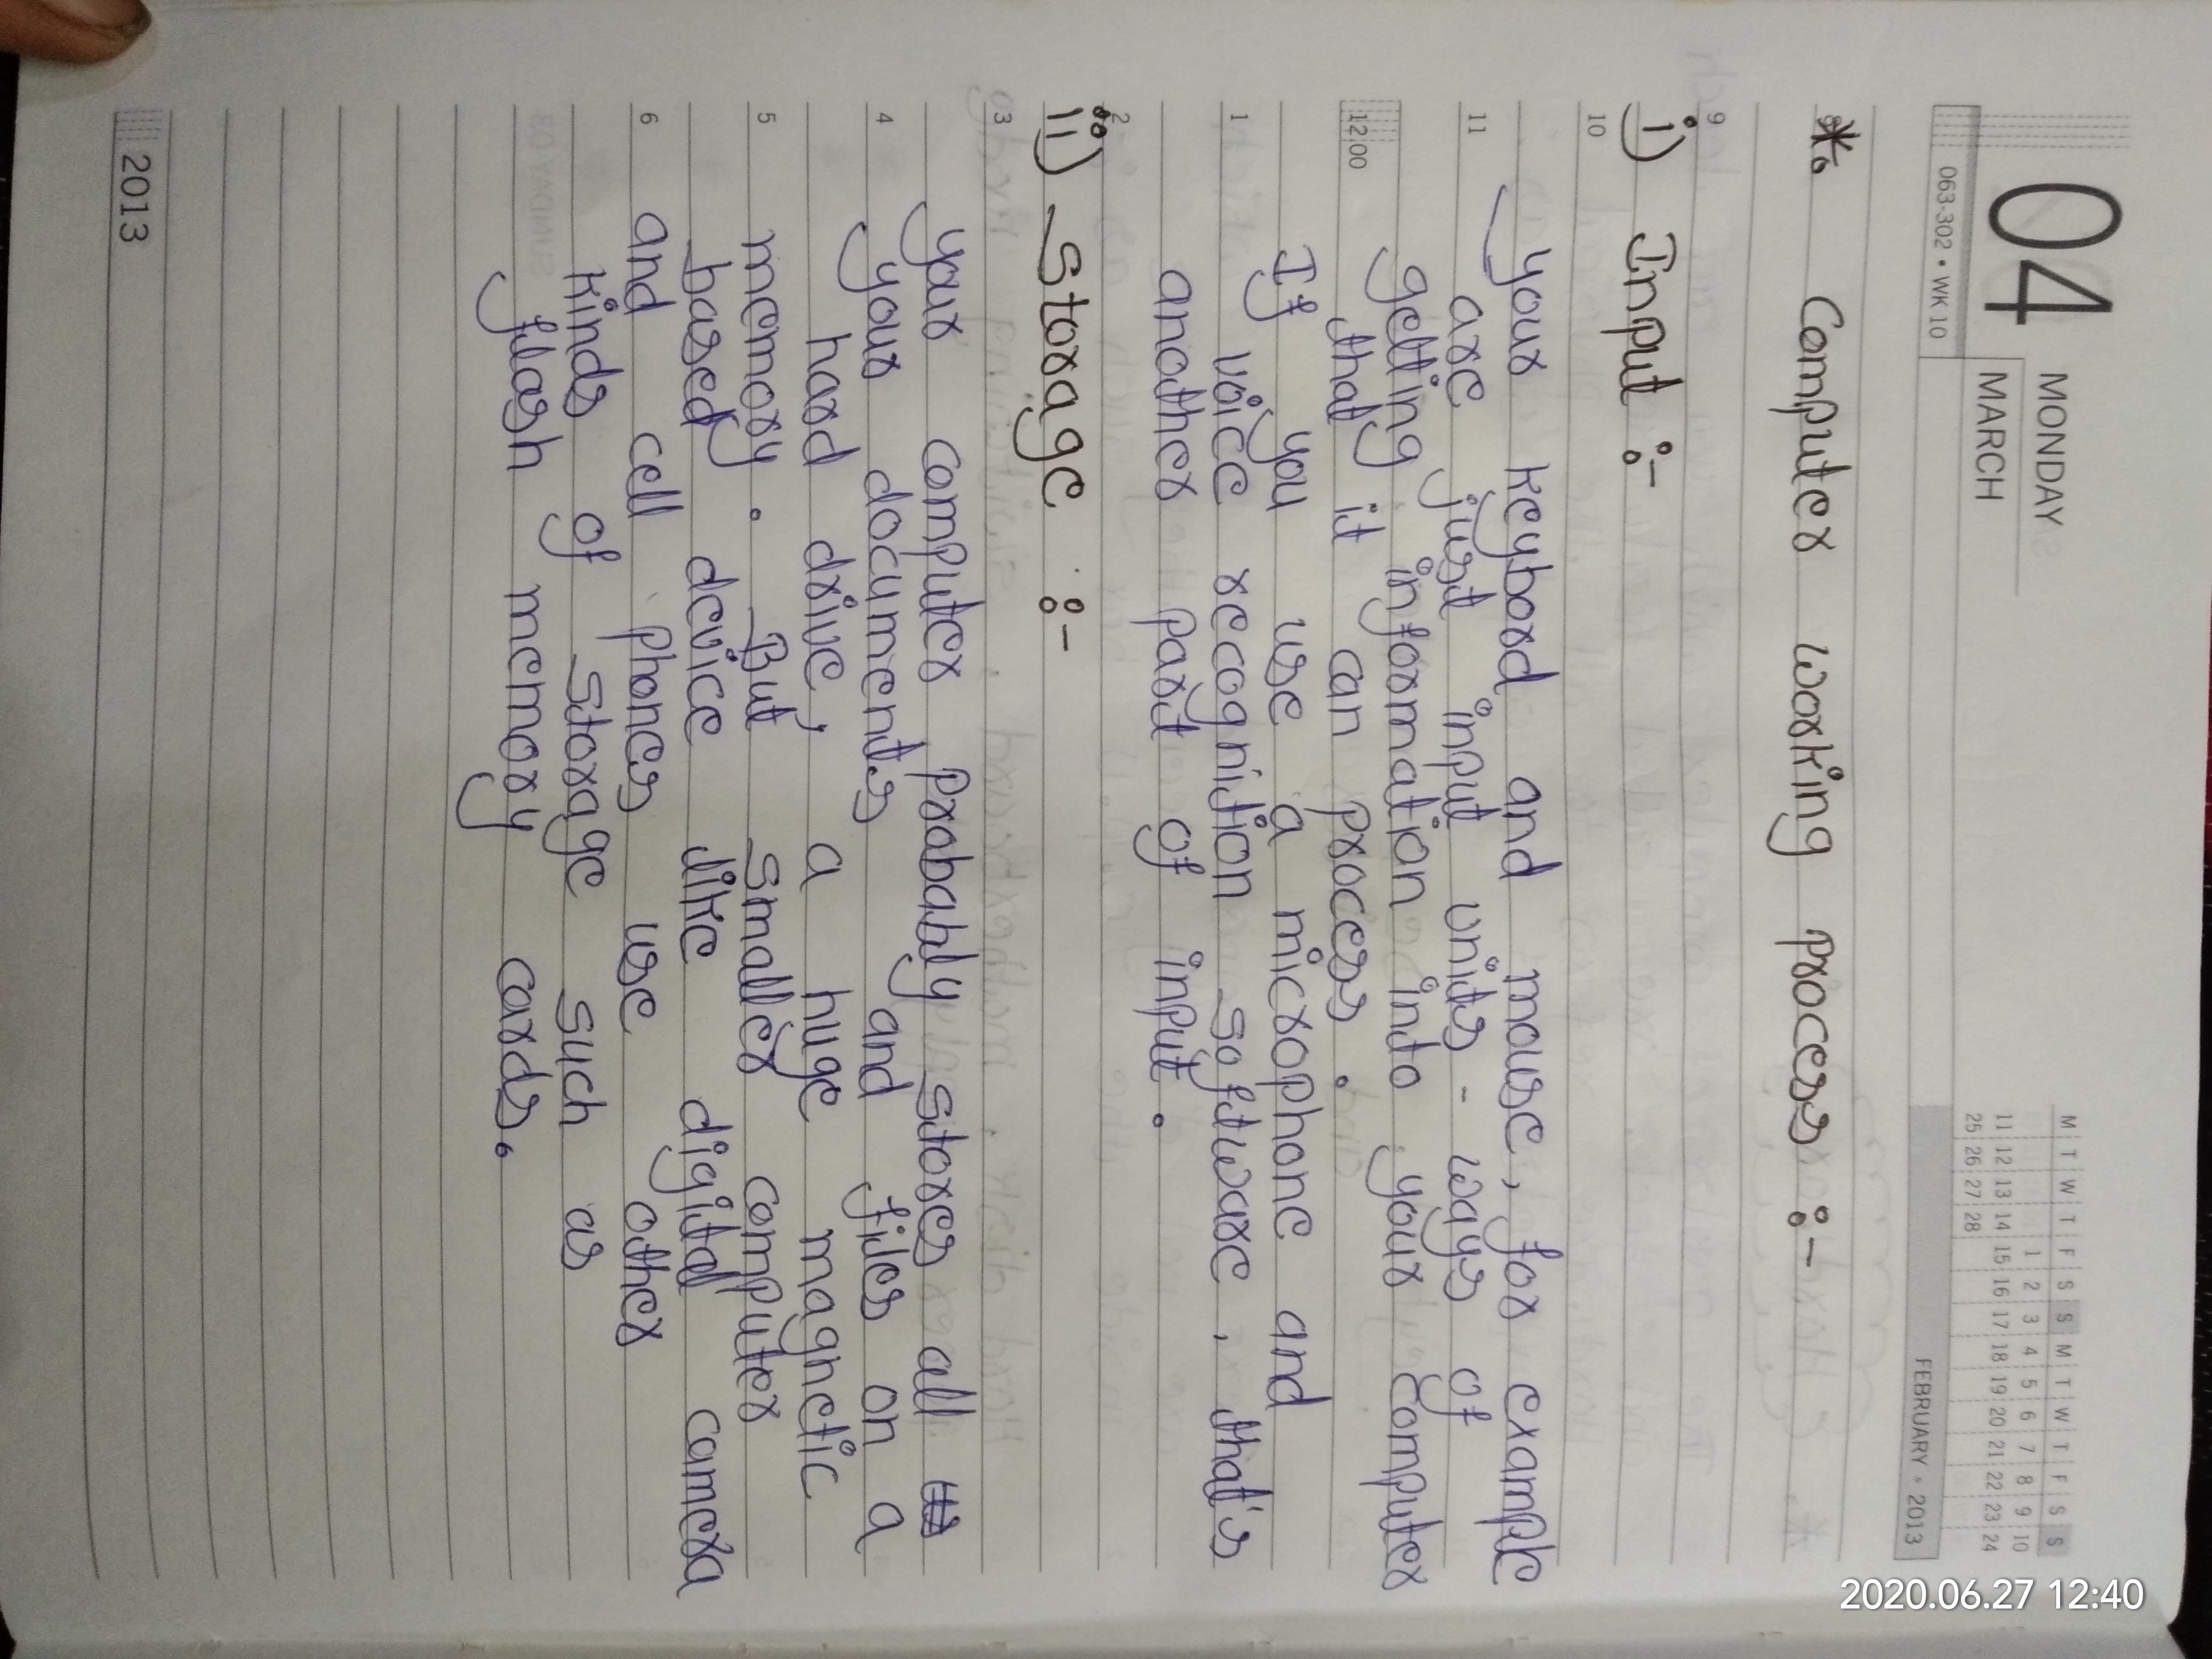 2020.06.27 12:40
04
MONDAY
MARCH
063-302 • WK 10
M T W T F S S M T W T F S S
1 2 3 4 5 6 7 8 9 10
11 12 13 14 15 16 17 18 19 20 21 22 23 24
25 26 27 28
FEBRUARY • 2013
*. Computer working process :-
9
i) Input :-
10
your keybord and mouse, for example
11
are just input units - ways of
getting information into your computer
12.00
that it can process.
If you use a microphone and
1
voice recognition software, that's
another part of input.
2
ii) Storage :-
3
your computer probably stores all
4
your documents and files on a
hard drive, a huge magnetic
5
memory. But smaller computer
based device like digital camera
6
and cell phones use other
kinds of storage such as
flash memory cards.
2013